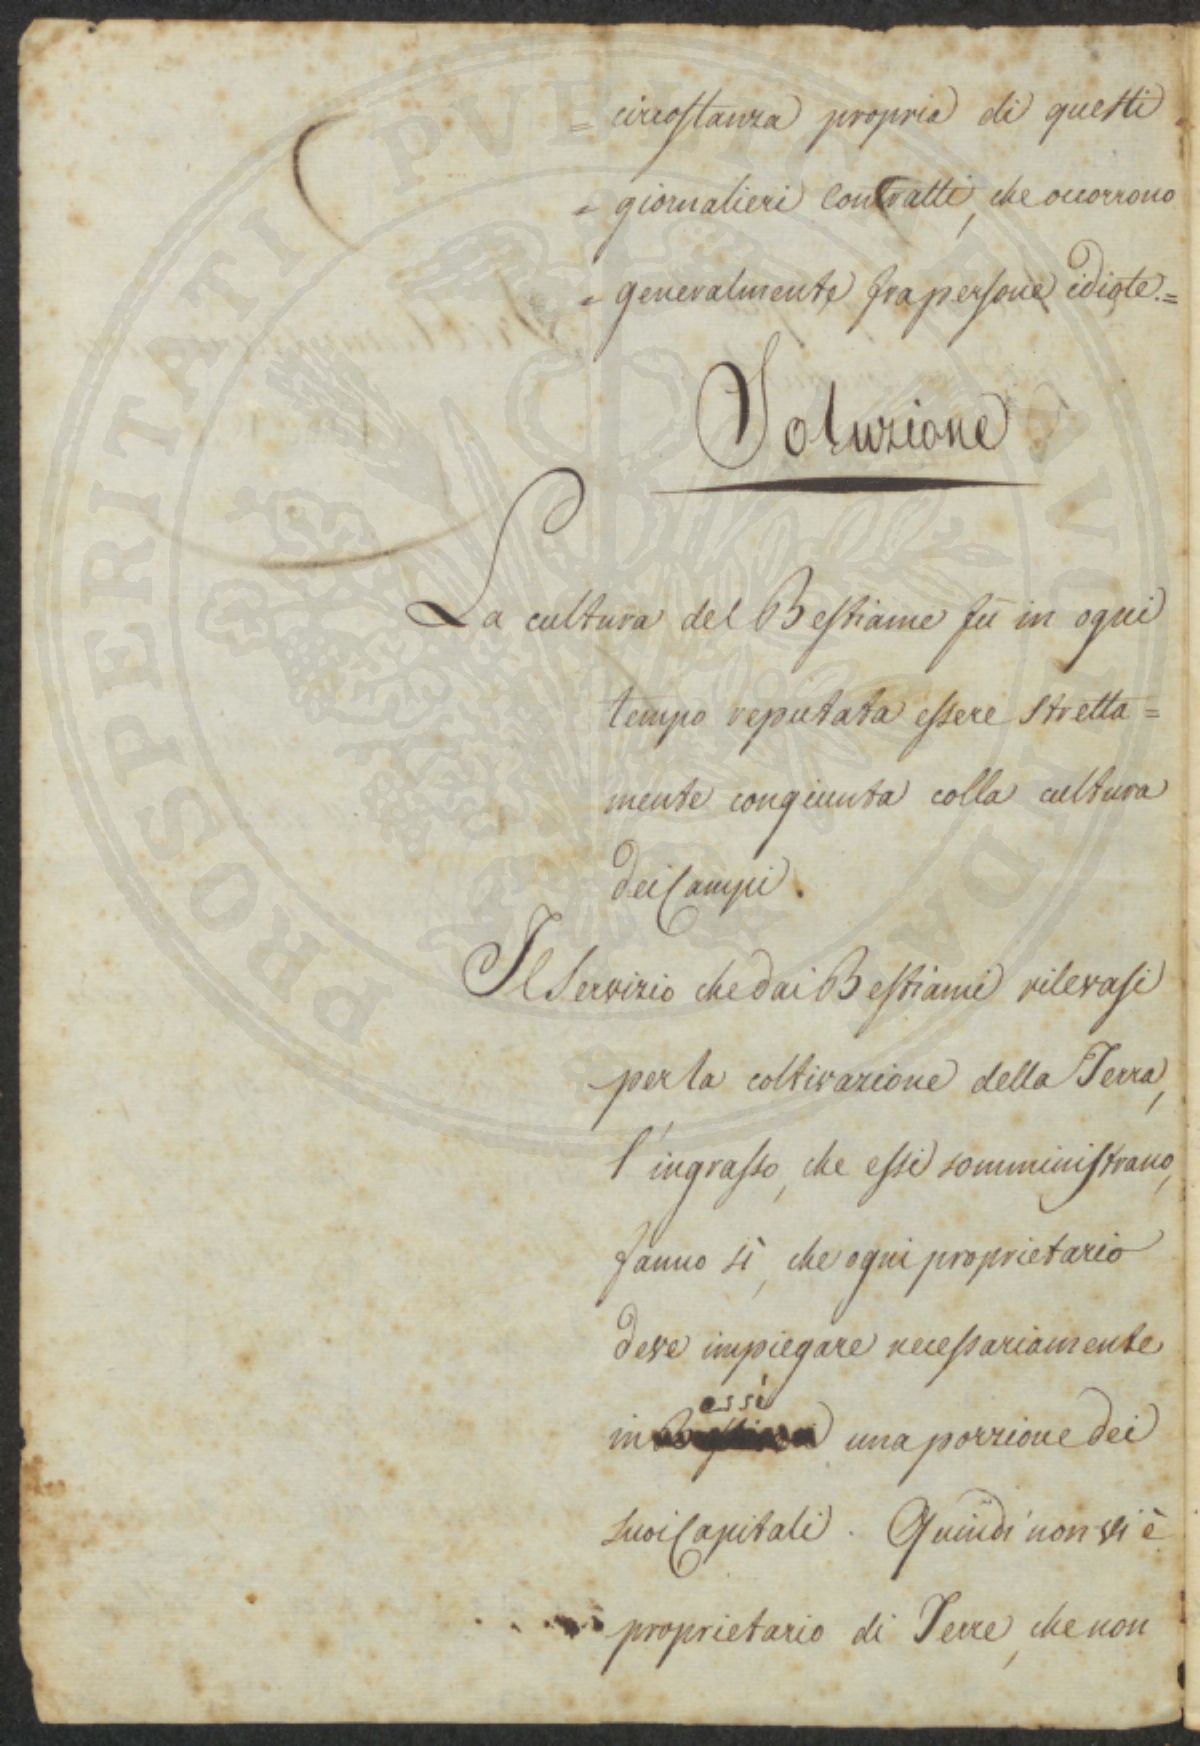 = circostanza propria di questi
= giornalieri Contratti, che occorrono
= generalmente fra persone idiote. =
Soluzione
La cultura del Bestiame fù in ogni
tempo reputata essere stretta=
mente congiunta colla cultura
dei Campi.
Il Servizio che dai Bestiami rilevasi
per la coltivazione della Terra,
l'ingrasso, che essi somministrano,
fanno sì, che ogni proprietario
deve impiegare necessariamente
essi
in una porzione dei
suoi Capitali. Quindi non vi è
proprietario di Terre, che non
PROSPERITATI PVBLICAE AVGENDAE